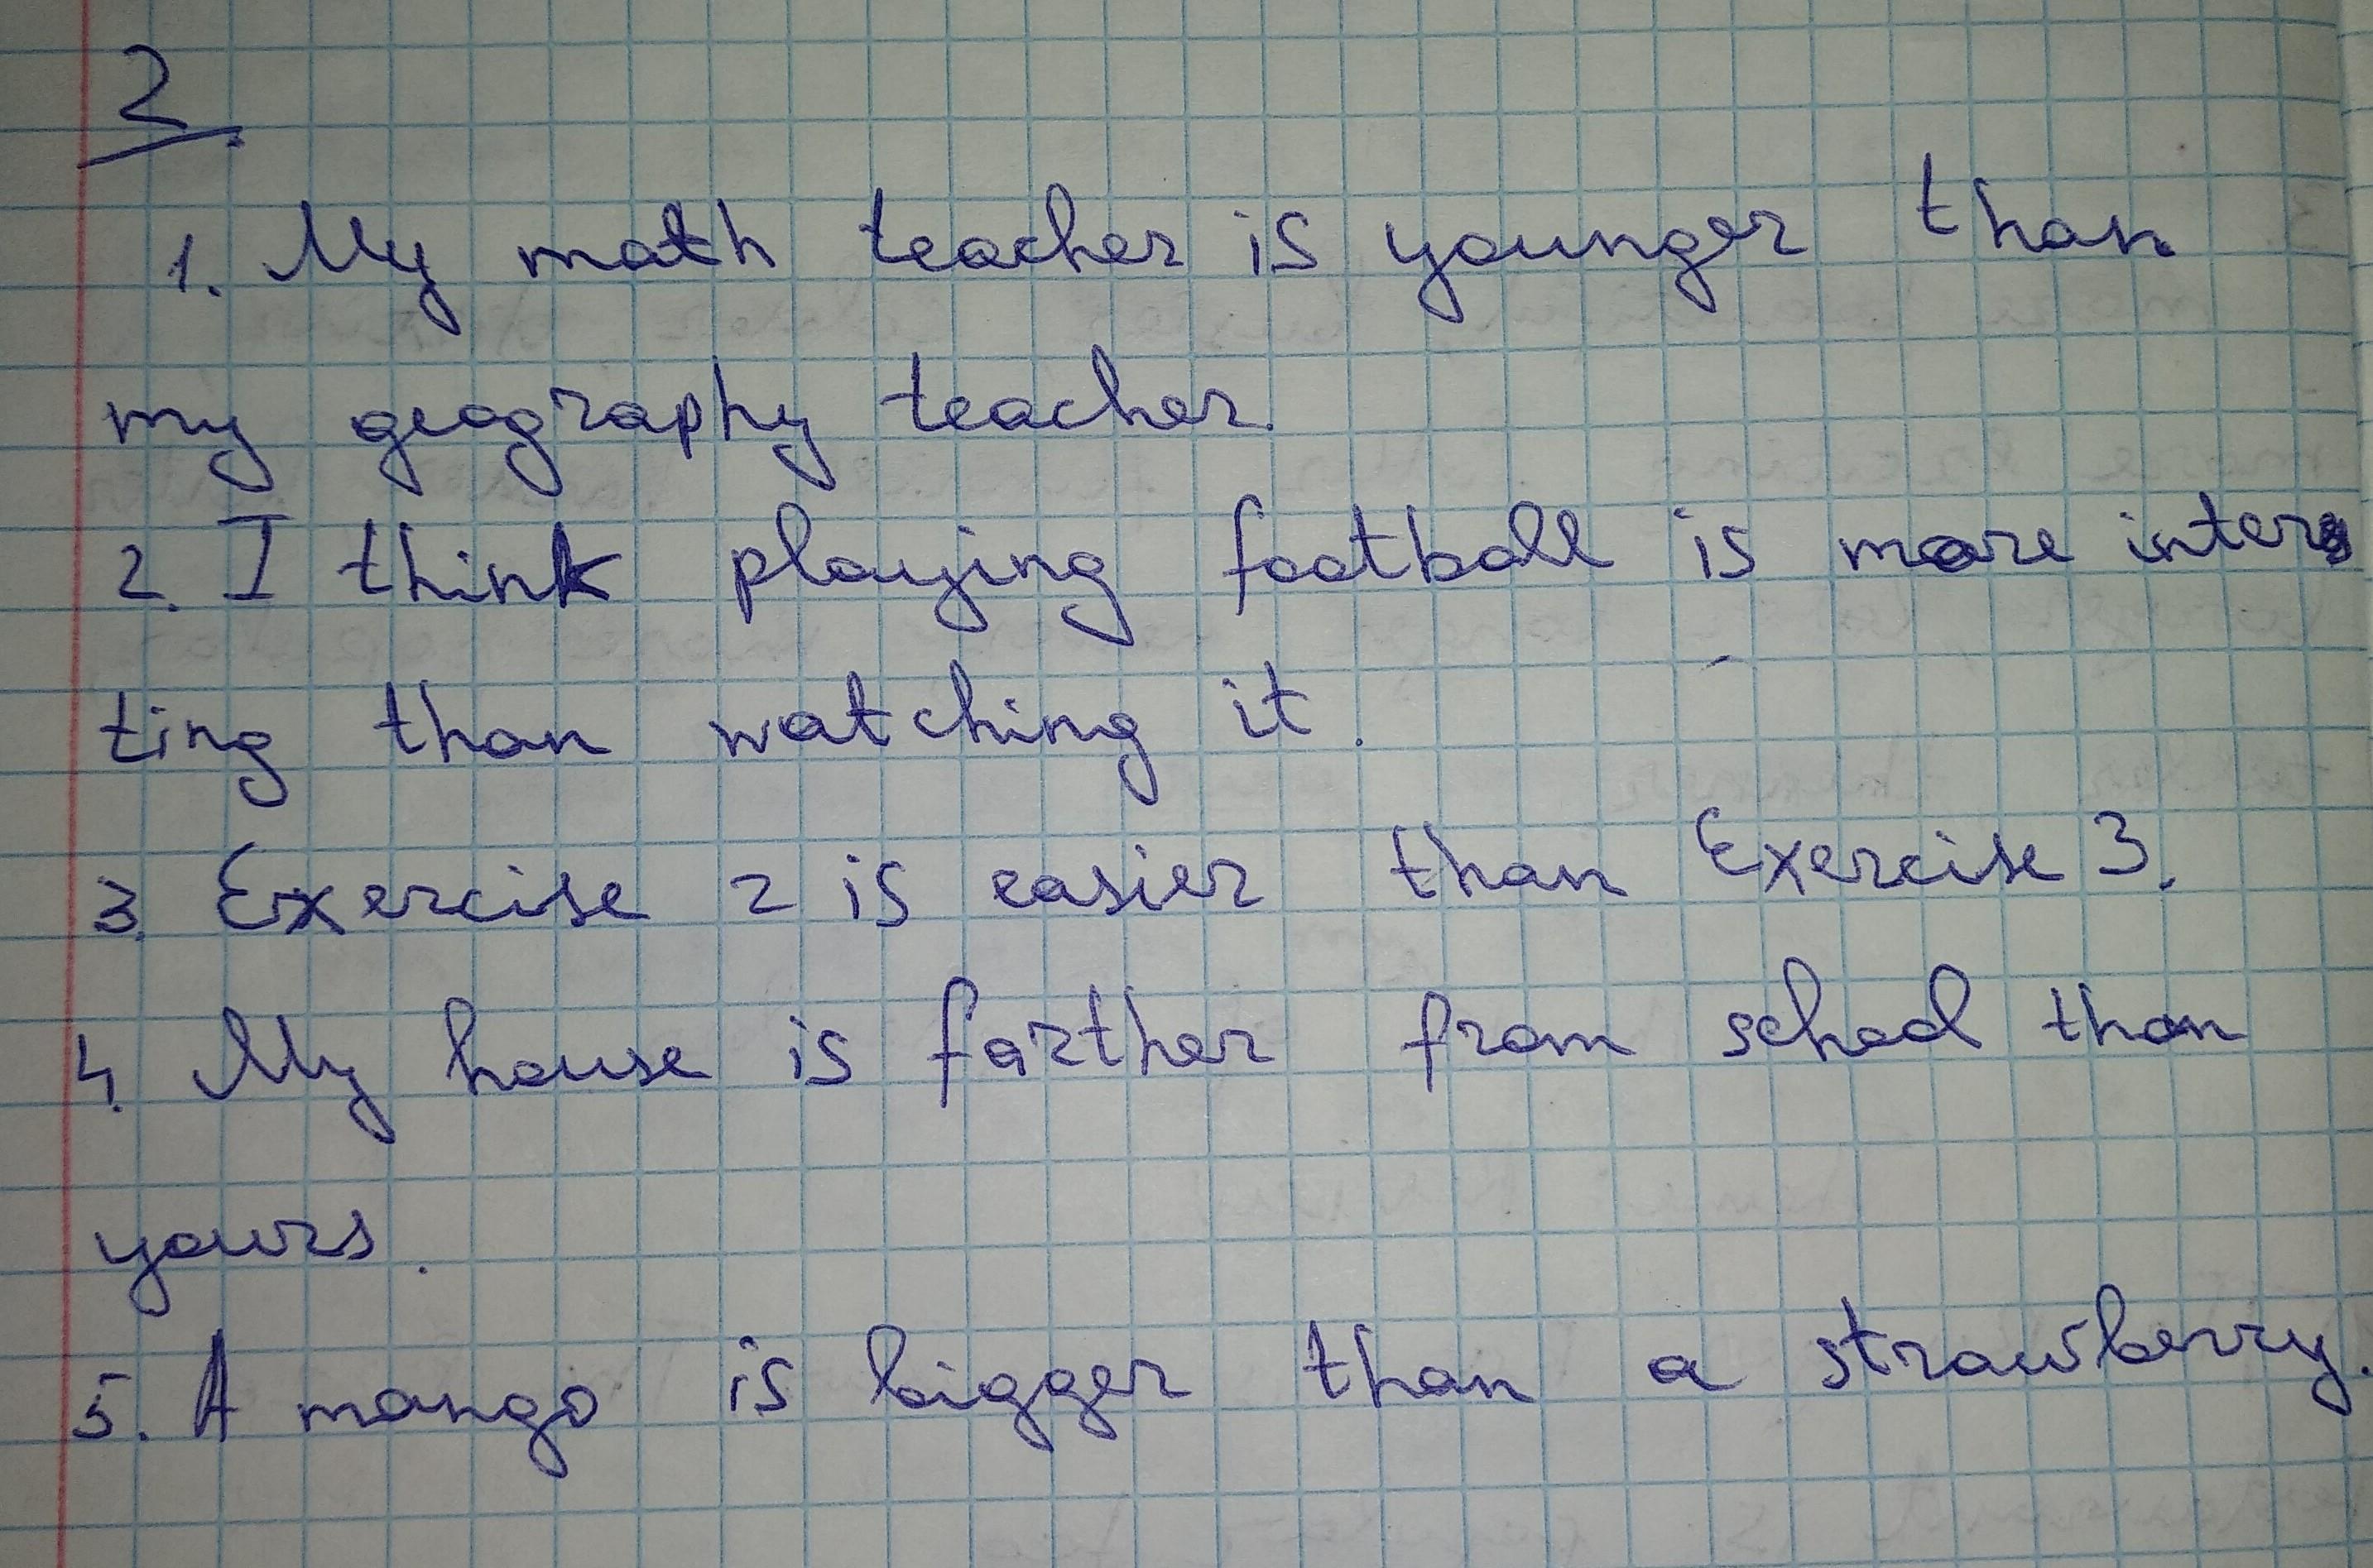 2.
1. My math teacher is younger than
my geography teacher.
2. I think playing football is more inters
ting than watching it.
3. Exercise 2 is easier than Exercise 3.
4. My house is farther from school than
yours.
5. A mango is bigger than a strawberry.